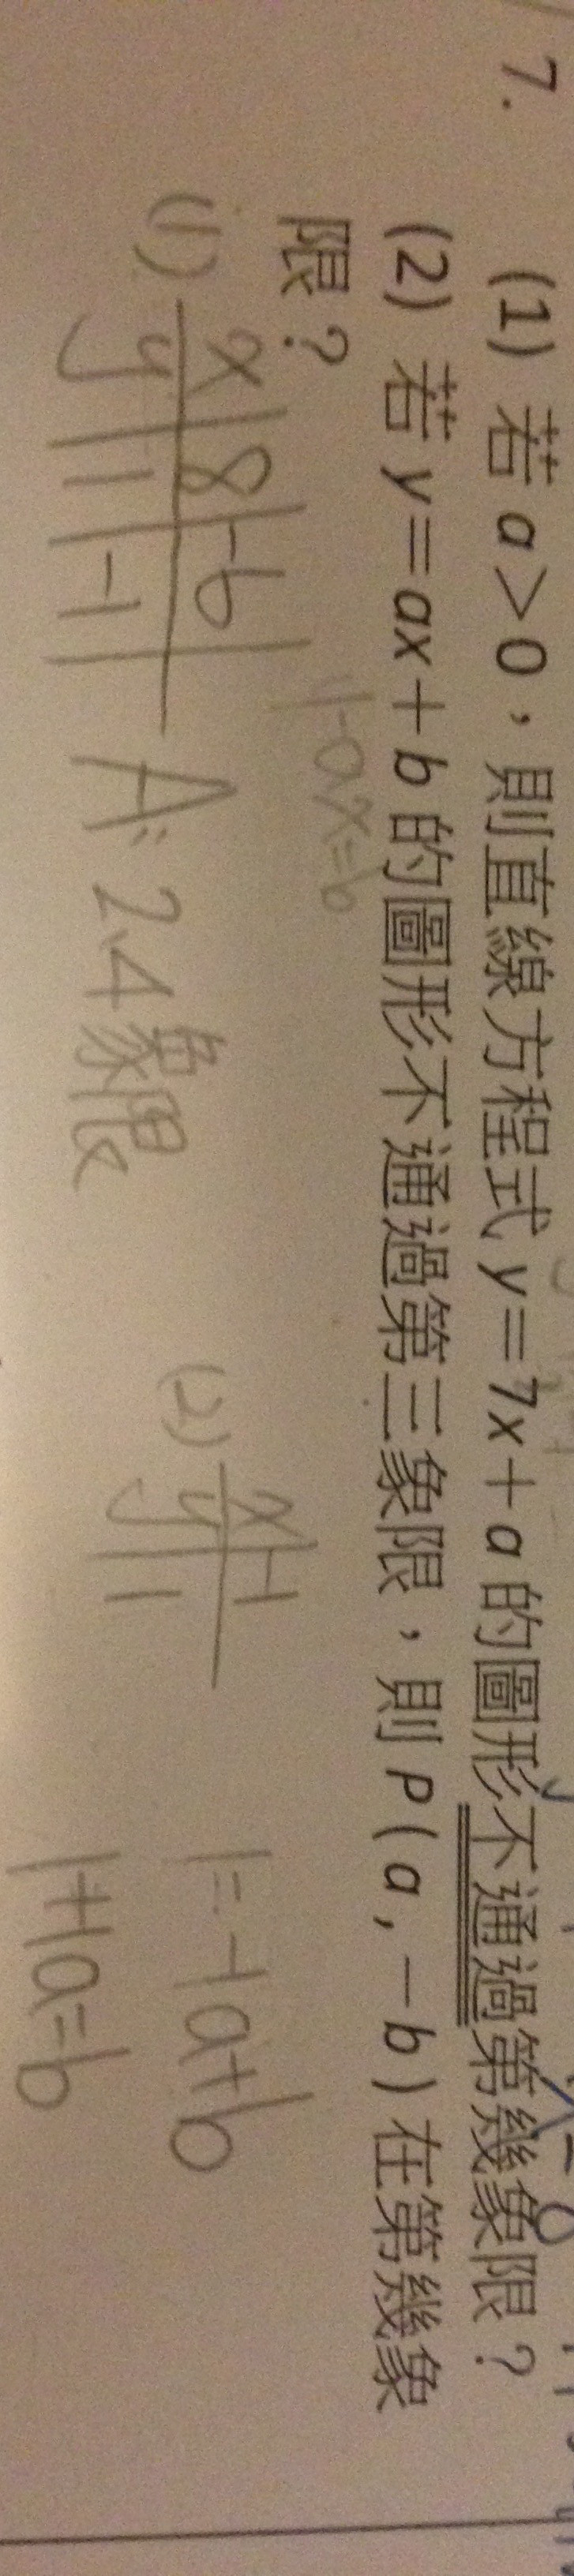 7. (1) 若 a > 0，則直線方程式 y = 7x + a 的圖形不通過第幾象限？
(2) 若 y = ax + b 的圖形不通過第三象限，則 P ( a , －b ) 在第幾象
限？
1-ax=b
(1) x 8 -6
y 1 -1
A: 2.4象限
(2) x -1
y 1
1=-1a+b
1+1a=b